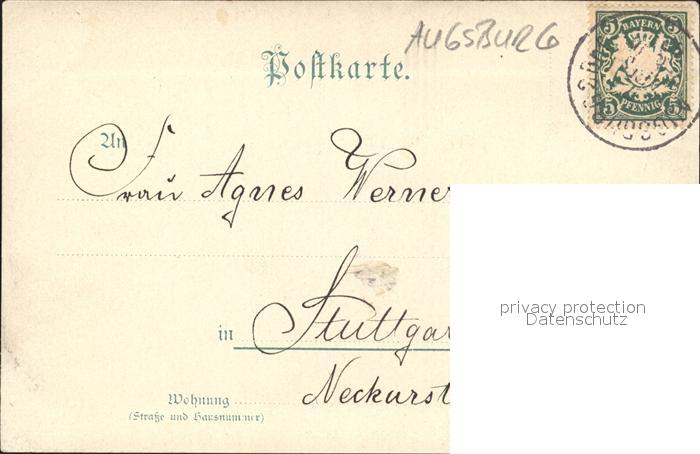 AUGSBURG
Postkarte.
BAYERN
5 5
5 PFENNIG 5
An
Frau Agnes Werner
in Stuttgar
Neckarst
Wohnung
(Straße und Hausnummer)
privacy protection
Datenschutz